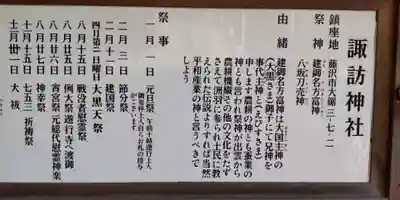 諏訪神社
鎮座地 藤沢市大鋸三-七-二
祭神 建御名方富神
八坂刀売神
由緒 建御名方富神は大国主神の
(大黒さま)御子にて兄神を
事代主神と(えびすさま)
申します農耕の神とも蚕業の
神とも言われ祭神が出雲から
農耕機織その他の文化をたず
さえて洲羽に参られ土民に教
えられた伝説よりすれば当然
平和産業の神と言うべきで
しよう
祭事
一月一日 元旦祭
二月三日 節分祭
二月十一日 建国祭
四月第二日曜日 大黒天祭
八月十五日 戦没者慰霊祭
八月廿五日 例大祭遊行寺へ渡御
八月廿六日 宵宮祭元総代慰霊神楽
八月廿七日 神幸祭
十一月十五日 七五三祈祷祭
十二月卅一日 大祓